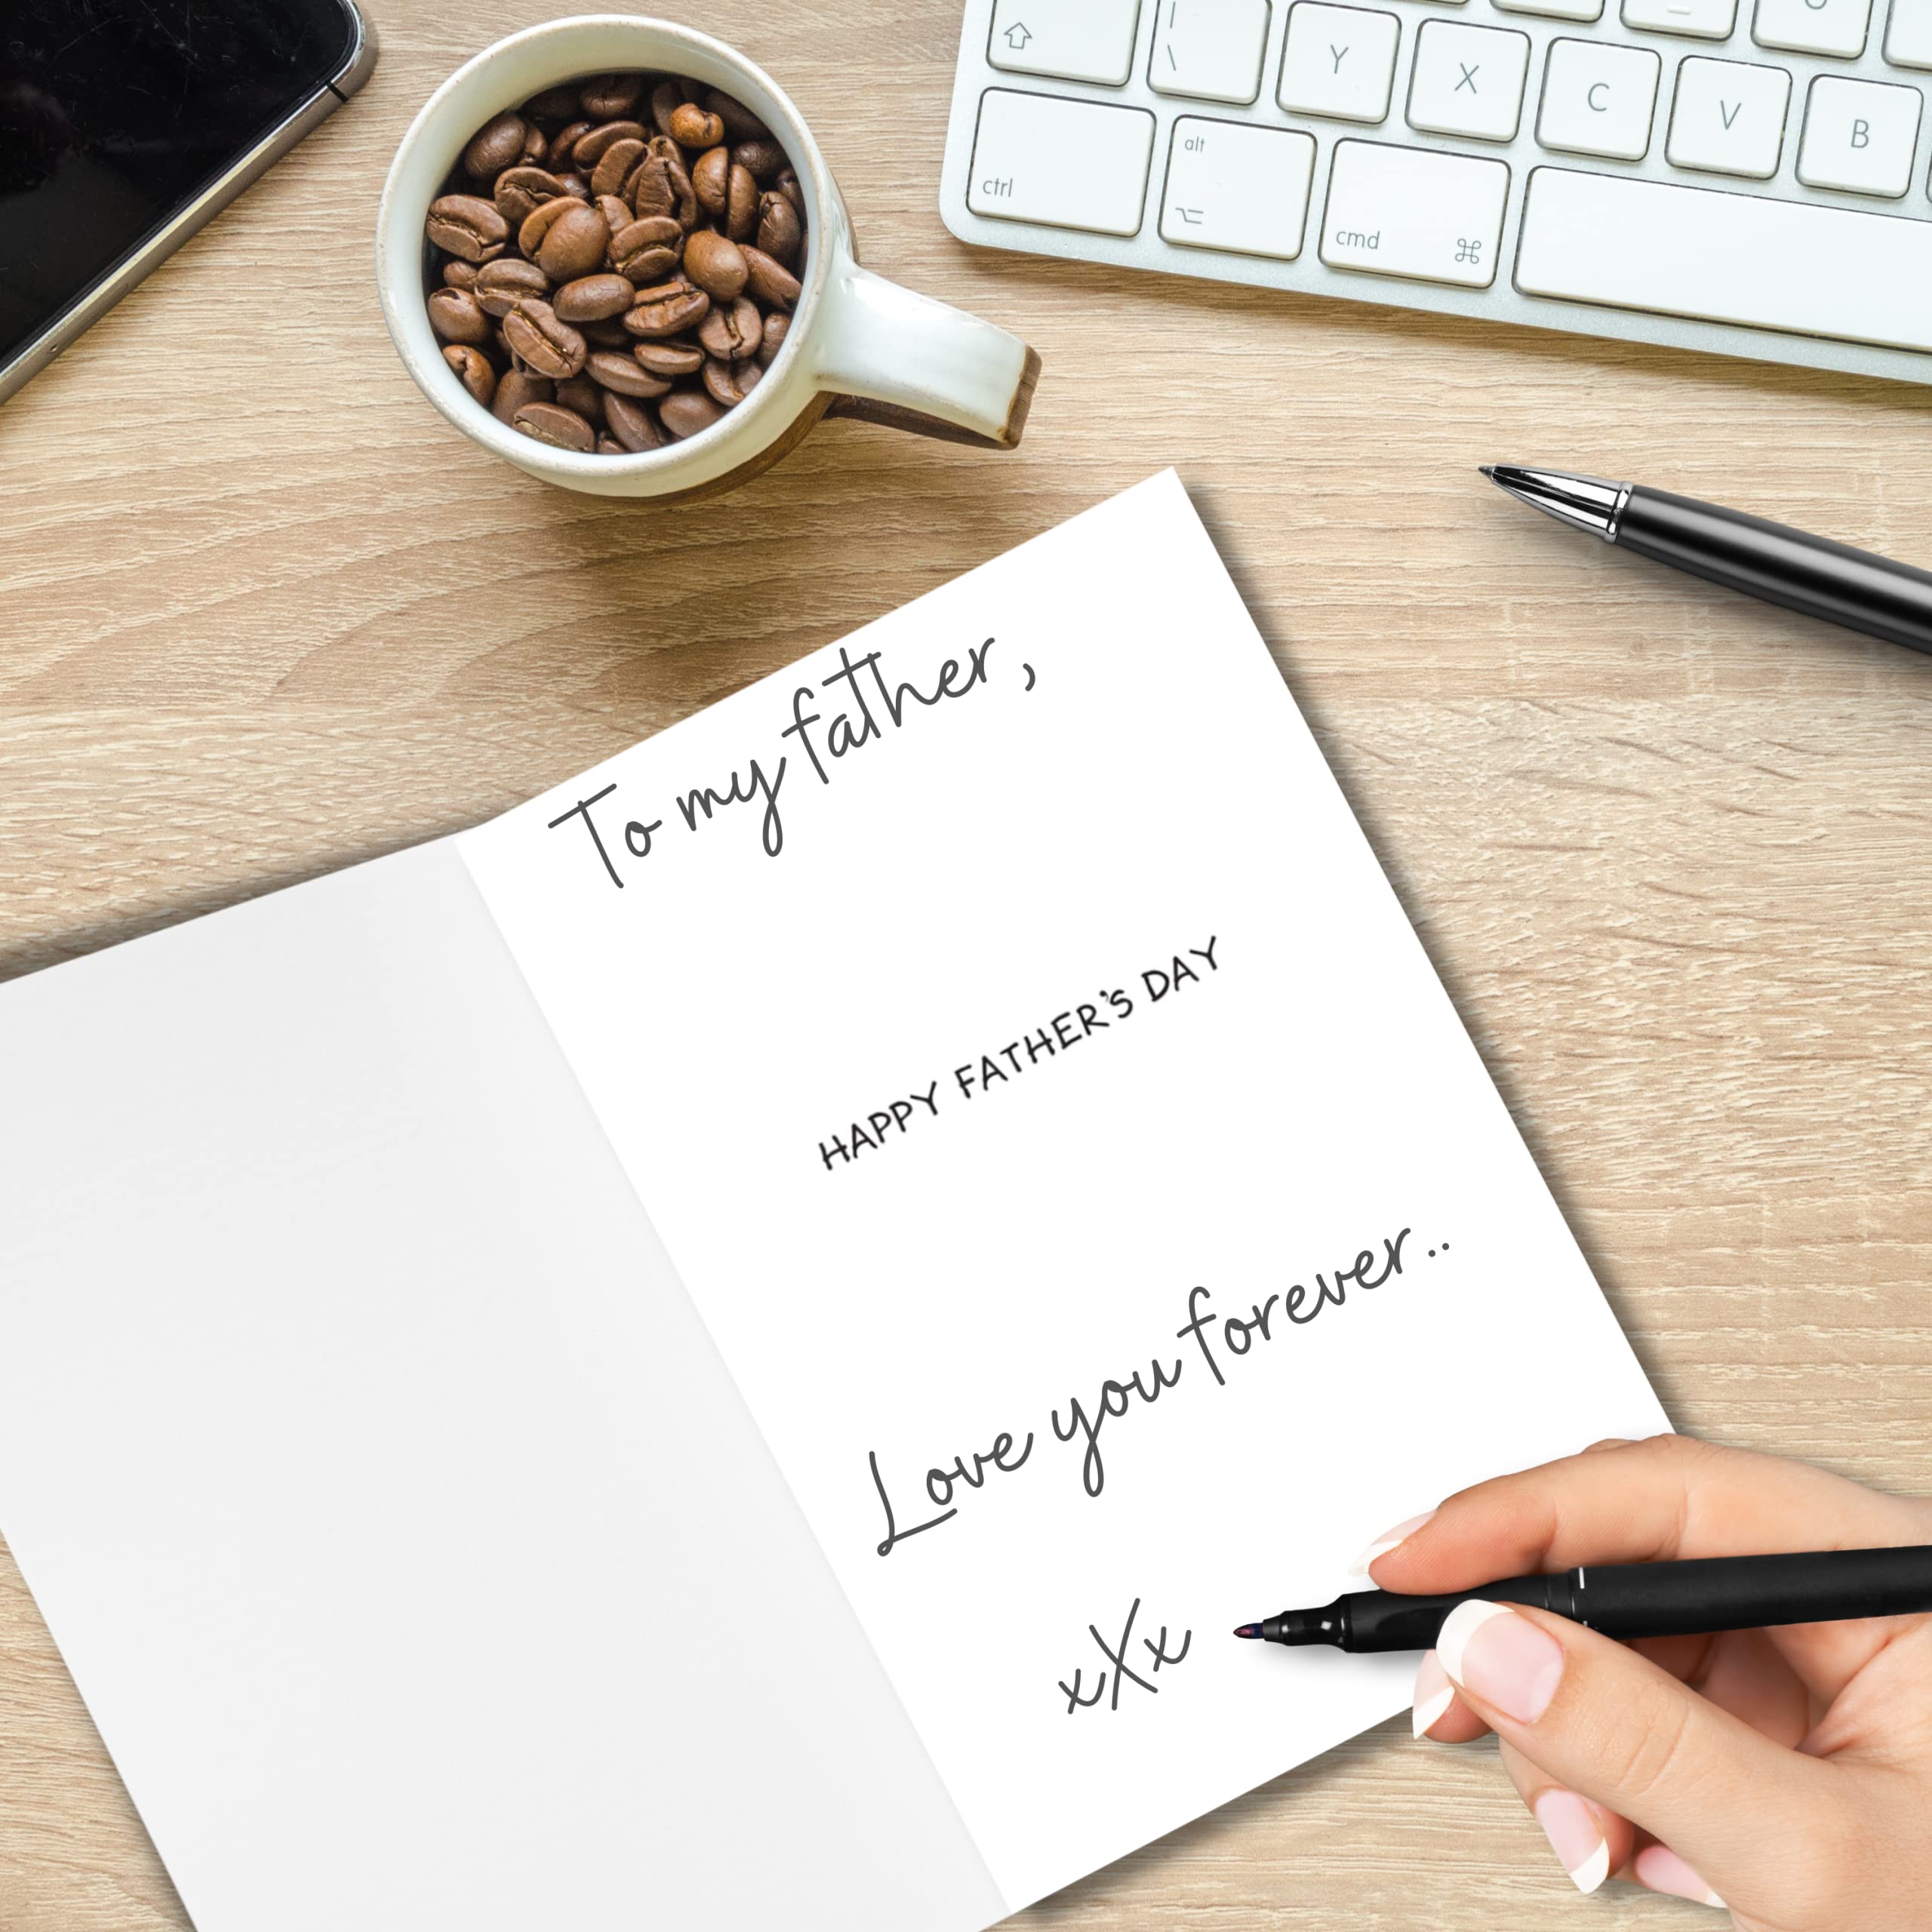 | \ Y X C V B
ctrl alt cmd
To my father,
HAPPY FATHER'S DAY
Love you forever..
xXx